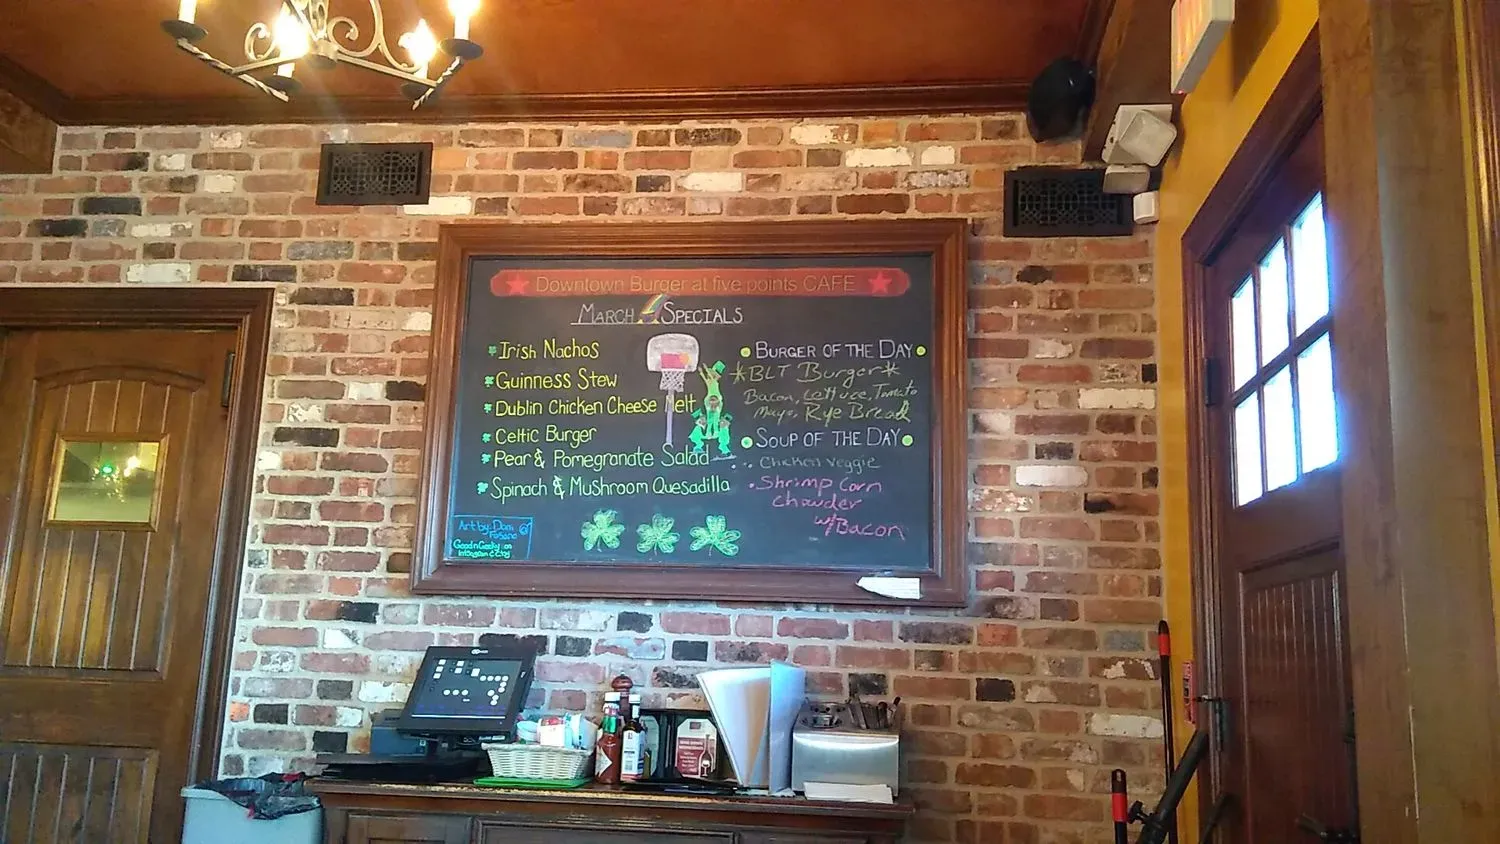 Downtown Burger at five points CAFE
March Specials
Irish Nachos
Guinness Stew
Dublin Chicken Cheese Melt
Celtic Burger
Pear & Pomegranate Salad
Spinach & Mushroom Quesadilla
Burger of the Day
*BLT Burger*
Bacon, Lettuce, Tomato
Mayo, Rye Bread
Soup of the Day
Chicken Veggie
Shrimp Corn
Chowder
w/ Bacon
Art by: Dani